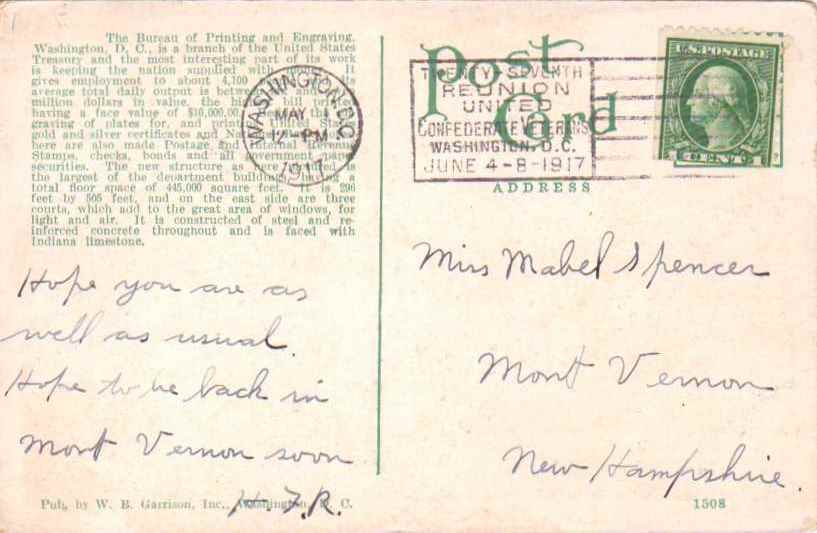 The Bureau of Printing and Engraving,
Washington, D. C., is a branch of the United States
Treasury and the most interesting part of its work
is keeping the nation supplied with It
gives employment to about 4,100 its
average total daily output is between and
million dollars in value, the bill printed
having a face value of $10,000.00. the
graving of plates for, and printing United States
gold and silver certificates and National
here are also made Postage and Internal Revenue
Stamps, checks, bonds and all government paper
securities. The new structure as here is
the largest of the department buildings, having a
total floor space of 445,000 square feet. It is 296
feet by 505 feet, and on the east side are three
courts, which add to the great area of windows, for
light and air. It is constructed of steel and re-
inforced concrete throughout and is faced with
Indiana limestone.
WASHINGTON, D.C.
MAY
12-PM
1917
Post
Card
TWENTY-SEVENTH
REUNION
UNITED
CONFEDERATE VETERANS
WASHINGTON, D.C.
JUNE 4-8-1917
U.S. POSTAGE
1 CENT 1
ADDRESS
Hope you are as
well as usual.
Hope to be back in
Mont Vernon soon
H. F. R.
Miss Mabel Spencer
Mont Vernon
New Hampshire.
Pub. by W. B. Garrison, Inc., Washington, D. C.
1508